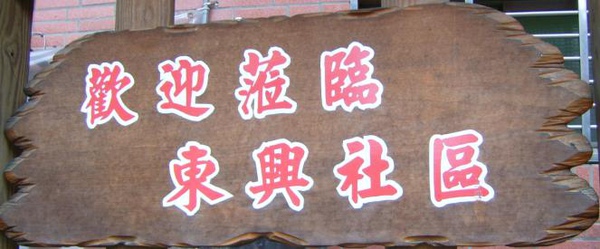 歡迎蒞臨
東興社區